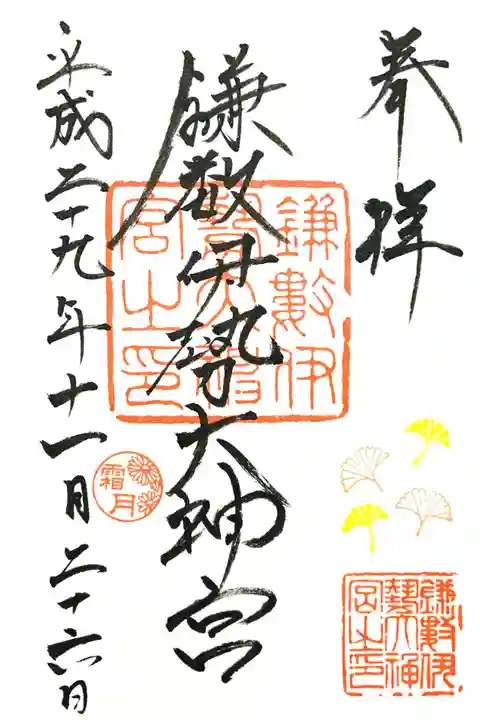 奉拝
鎌数伊勢大神宮
鎌數伊
勢大神
宮之印
平成二十九年十一月二十六日
霜月
鎌數伊
勢大神
宮之印